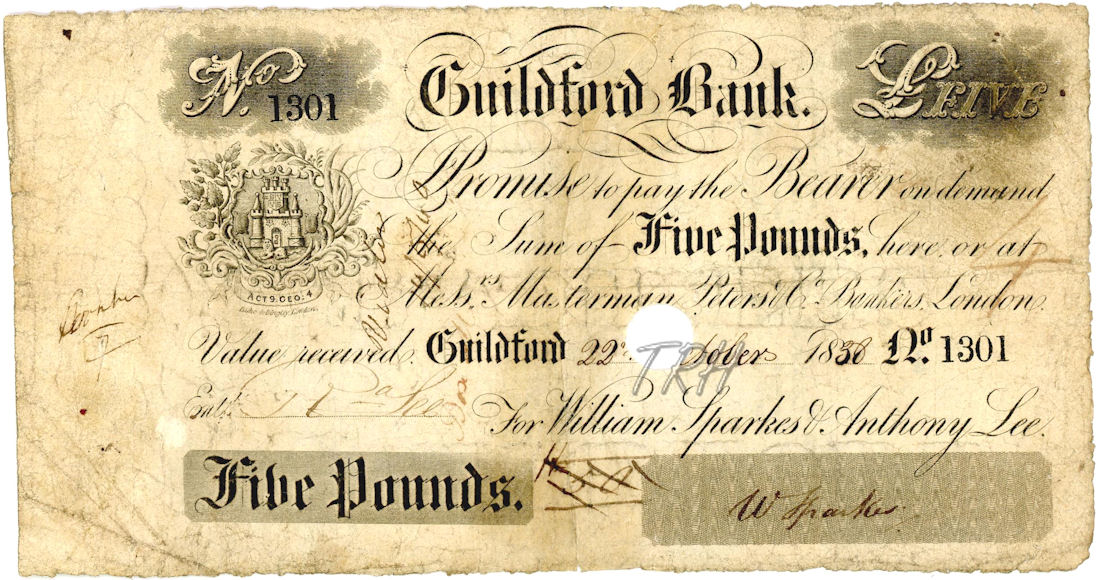 No 1301
Guildford Bank.
£FIVE
I Promise to pay the Bearer on demand
the Sum of Five Pounds, here or at
Messrs. Masterman Peters & Co. Bankers London.
ACT 9. GEO. 4
Value received. Guildford 22 1838 No. 1301
TRH
Entd.
For William Sparkes & Anthony Lee.
Five Pounds.
W Sparkes